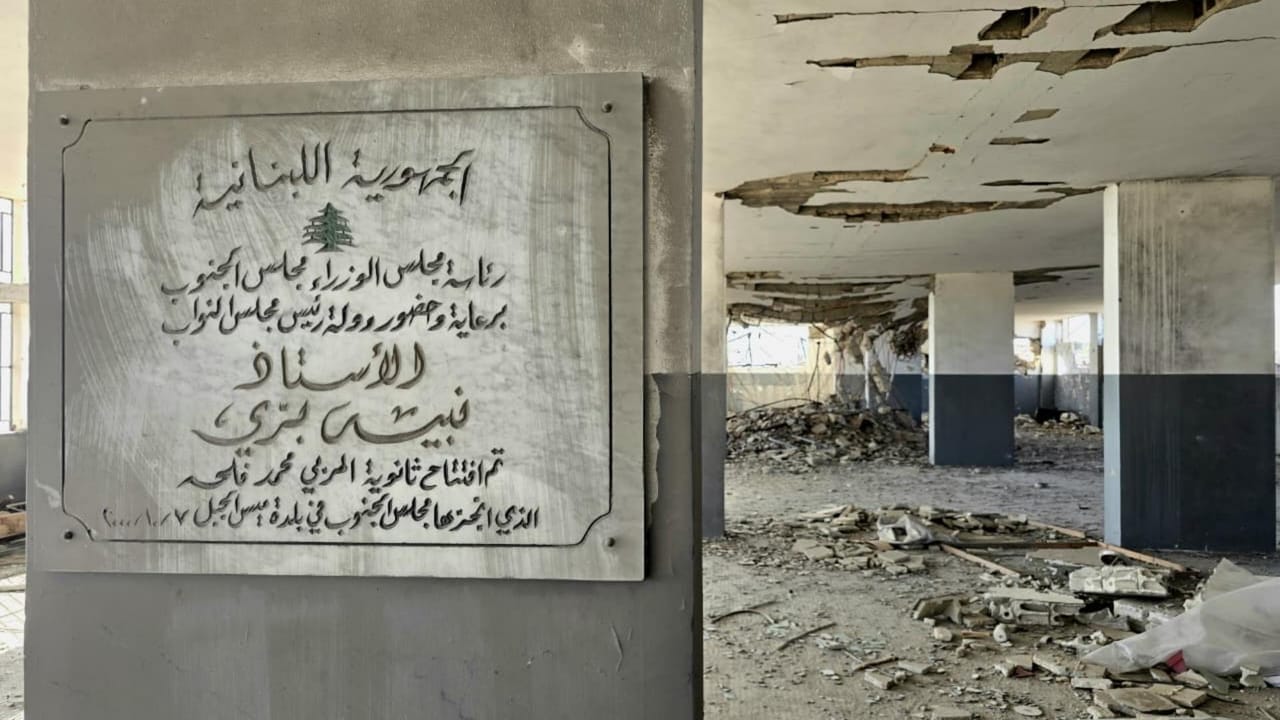 الجمهورية اللبنانية
رئاسة مجلس الوزراء مجلس الجنوب
برعاية وحضور دولة رئيس مجلس النواب
الأستاذ
نبيه بري
تم افتتاح ثانوية المربي محمد فلحه
الذي انجزها مجلس الجنوب في بلدة ميس الجبل ٢٠٠٠/١٠/٧